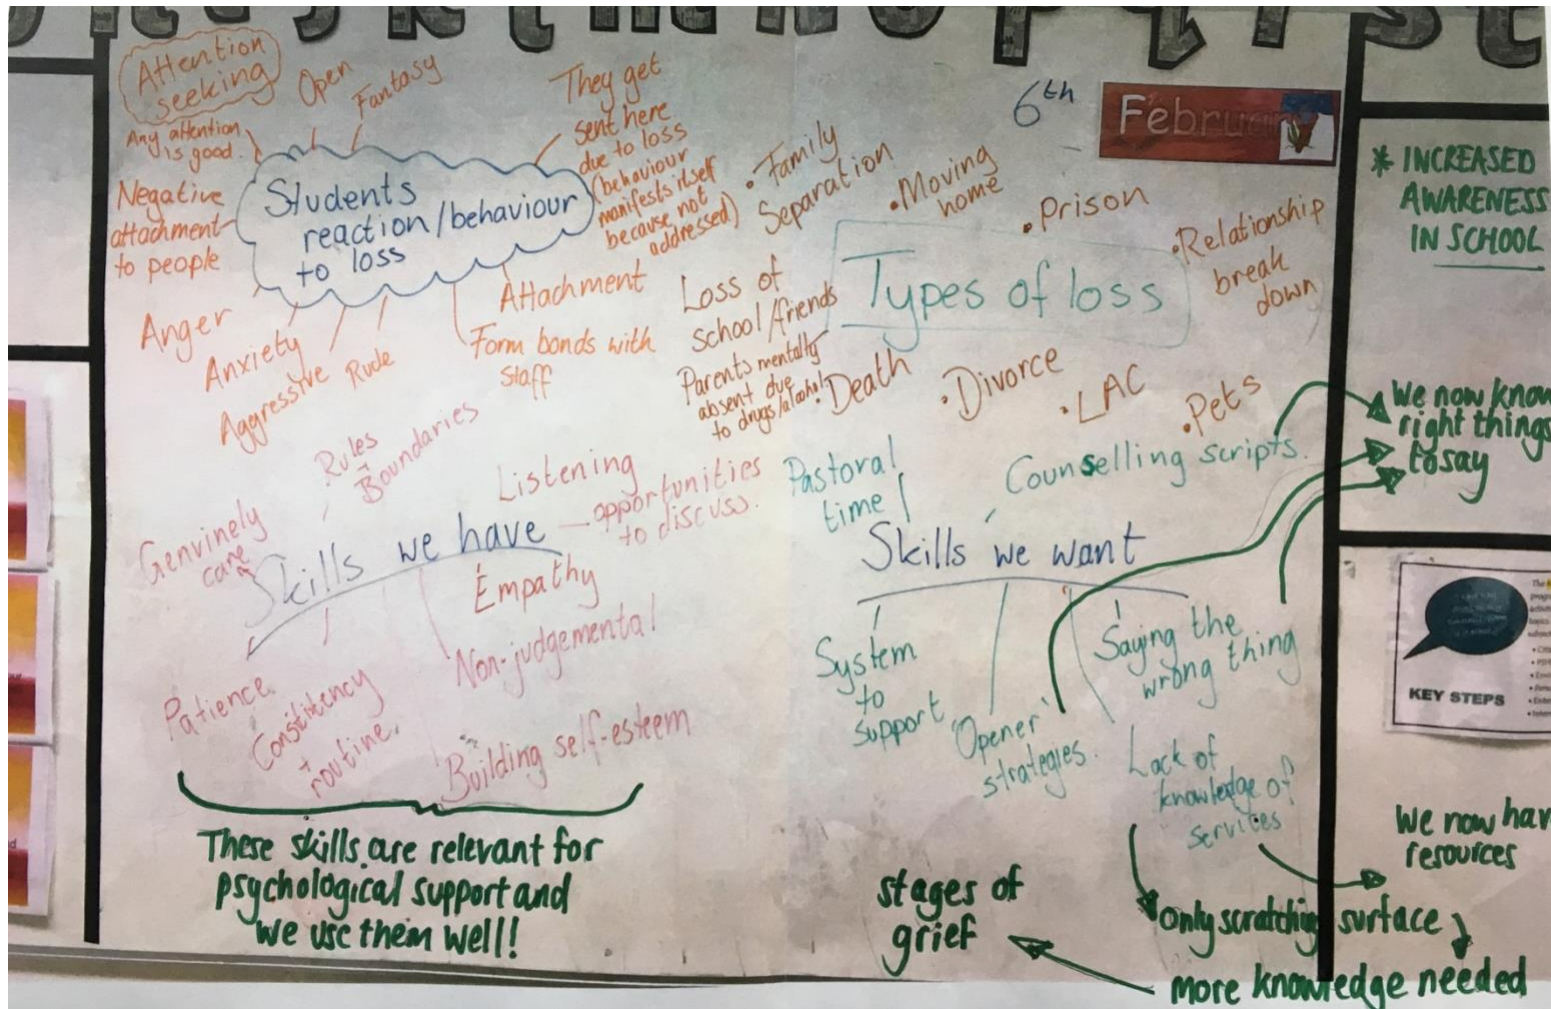 6th
February
Attention
seeking
Any attention
is good.
Open
Fantasy
They get
sent here
due to loss
(behaviour
manifests itself
because not
addressed)
Negative
attachment
to people
Students
reaction/behaviour
to loss
Anger
Anxiety
Aggressive
Rude
Attachment
Form bonds with
staff
Types of loss
• Family
Separation
• Moving
home
• Prison
• Relationship
break
down
Loss of
school/friends
Parents mentally
absent due
to drugs/alcohol
• Death
• Divorce
• LAC
• Pets
Skills we have
Rules
+
Boundaries
Listening
opportunities
to discuss.
Genuinely
care
Empathy
Non-judgemental
Patience
+
routine.
Building self-esteem
These skills are relevant for
psychological support and
we use them well!
Skills we want
Pastoral
time
Counselling scripts.
System
to
support
'Opener'
strategies.
Saying the
wrong thing
Lack of
knowledge of
services
stages of
grief
only scratching surface
more knowledge needed
* INCREASED
AWARENESS
IN SCHOOL
We now know
right things
to say
KEY STEPS
We now hav
resources